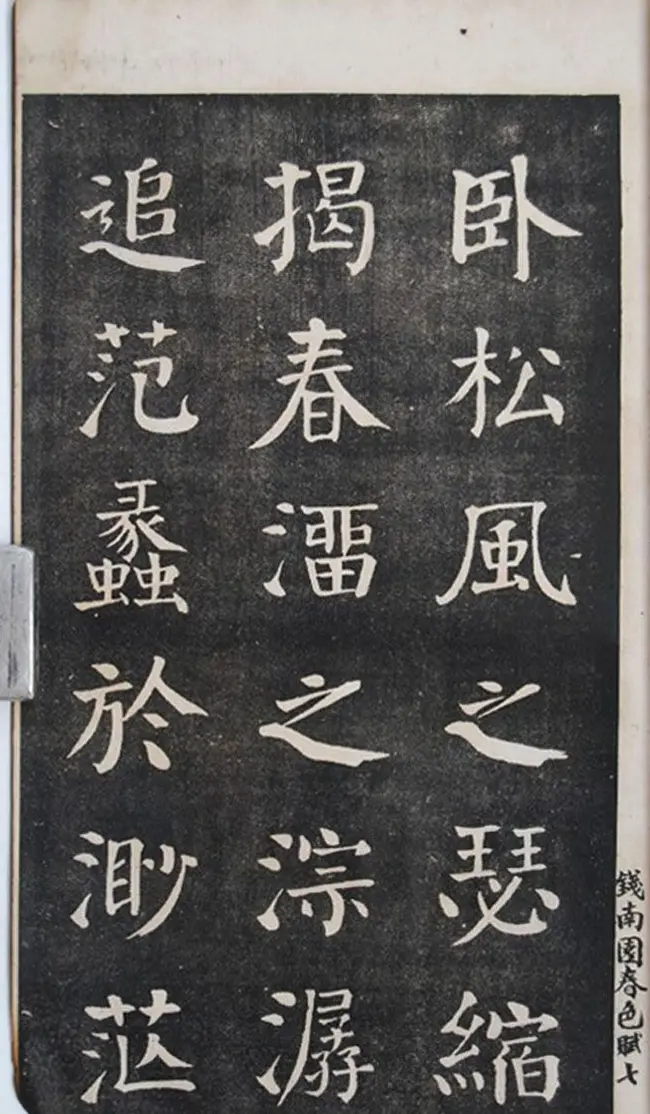 卧松風之瑟縮
揭春澑之淙潺
追范蠡於渺茫
錢南園春色賦 七